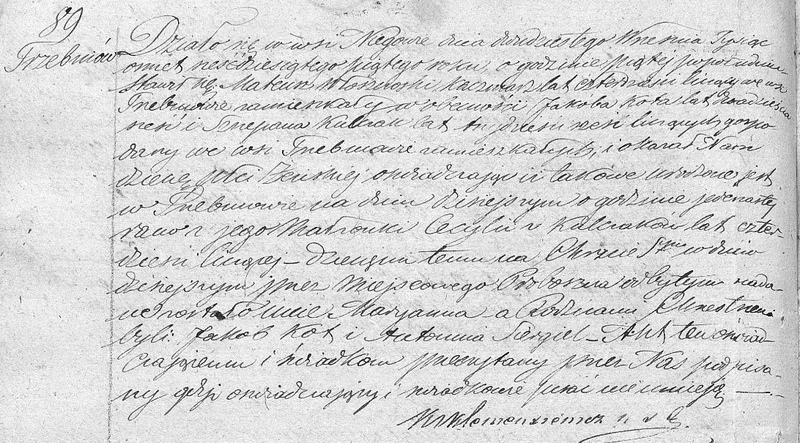 89
Trzebniów
Działo się w wsi Niegowie dnia dwudziestego Września Tysiąc
ośmset sześćdziesiątego piątego roku o godzinie piątej popołudniu
Stawił się Mateusz karczmarz lat czterdzieści liczący we wsi
Trzebniowie zamieszkały w obecności Jakóba Kota lat dwadzieścia
sześć i Szczepana Kulczak lat trzydzieści sześć liczących gospo
darzy we wsi Trzebniowie zamieszkałych, i okazał Nam
dziecię płci żeńskiej oświadczając iż takowe urodzone jest
w Trzebniowie na dniu dzisiejszym o godzinie jedenastej
rano z jego Małżonki Cecylii z Kulczaków lat czter
dzieści liczącej – Dziecięciu temu na Chrzcie Stym w dniu
dzisiejszym przez Miejscowego Proboszcza odbytym nada
ne zostało imie Maryanna a Rodzicami Chrzestnemi
byli: Jakób Kot i Antonina – Akt ten oświad
czającemu i świadkom przeczytany przez Nas podpisa
ny gdyż oświadczający i świadkowie pisać nieumieją –